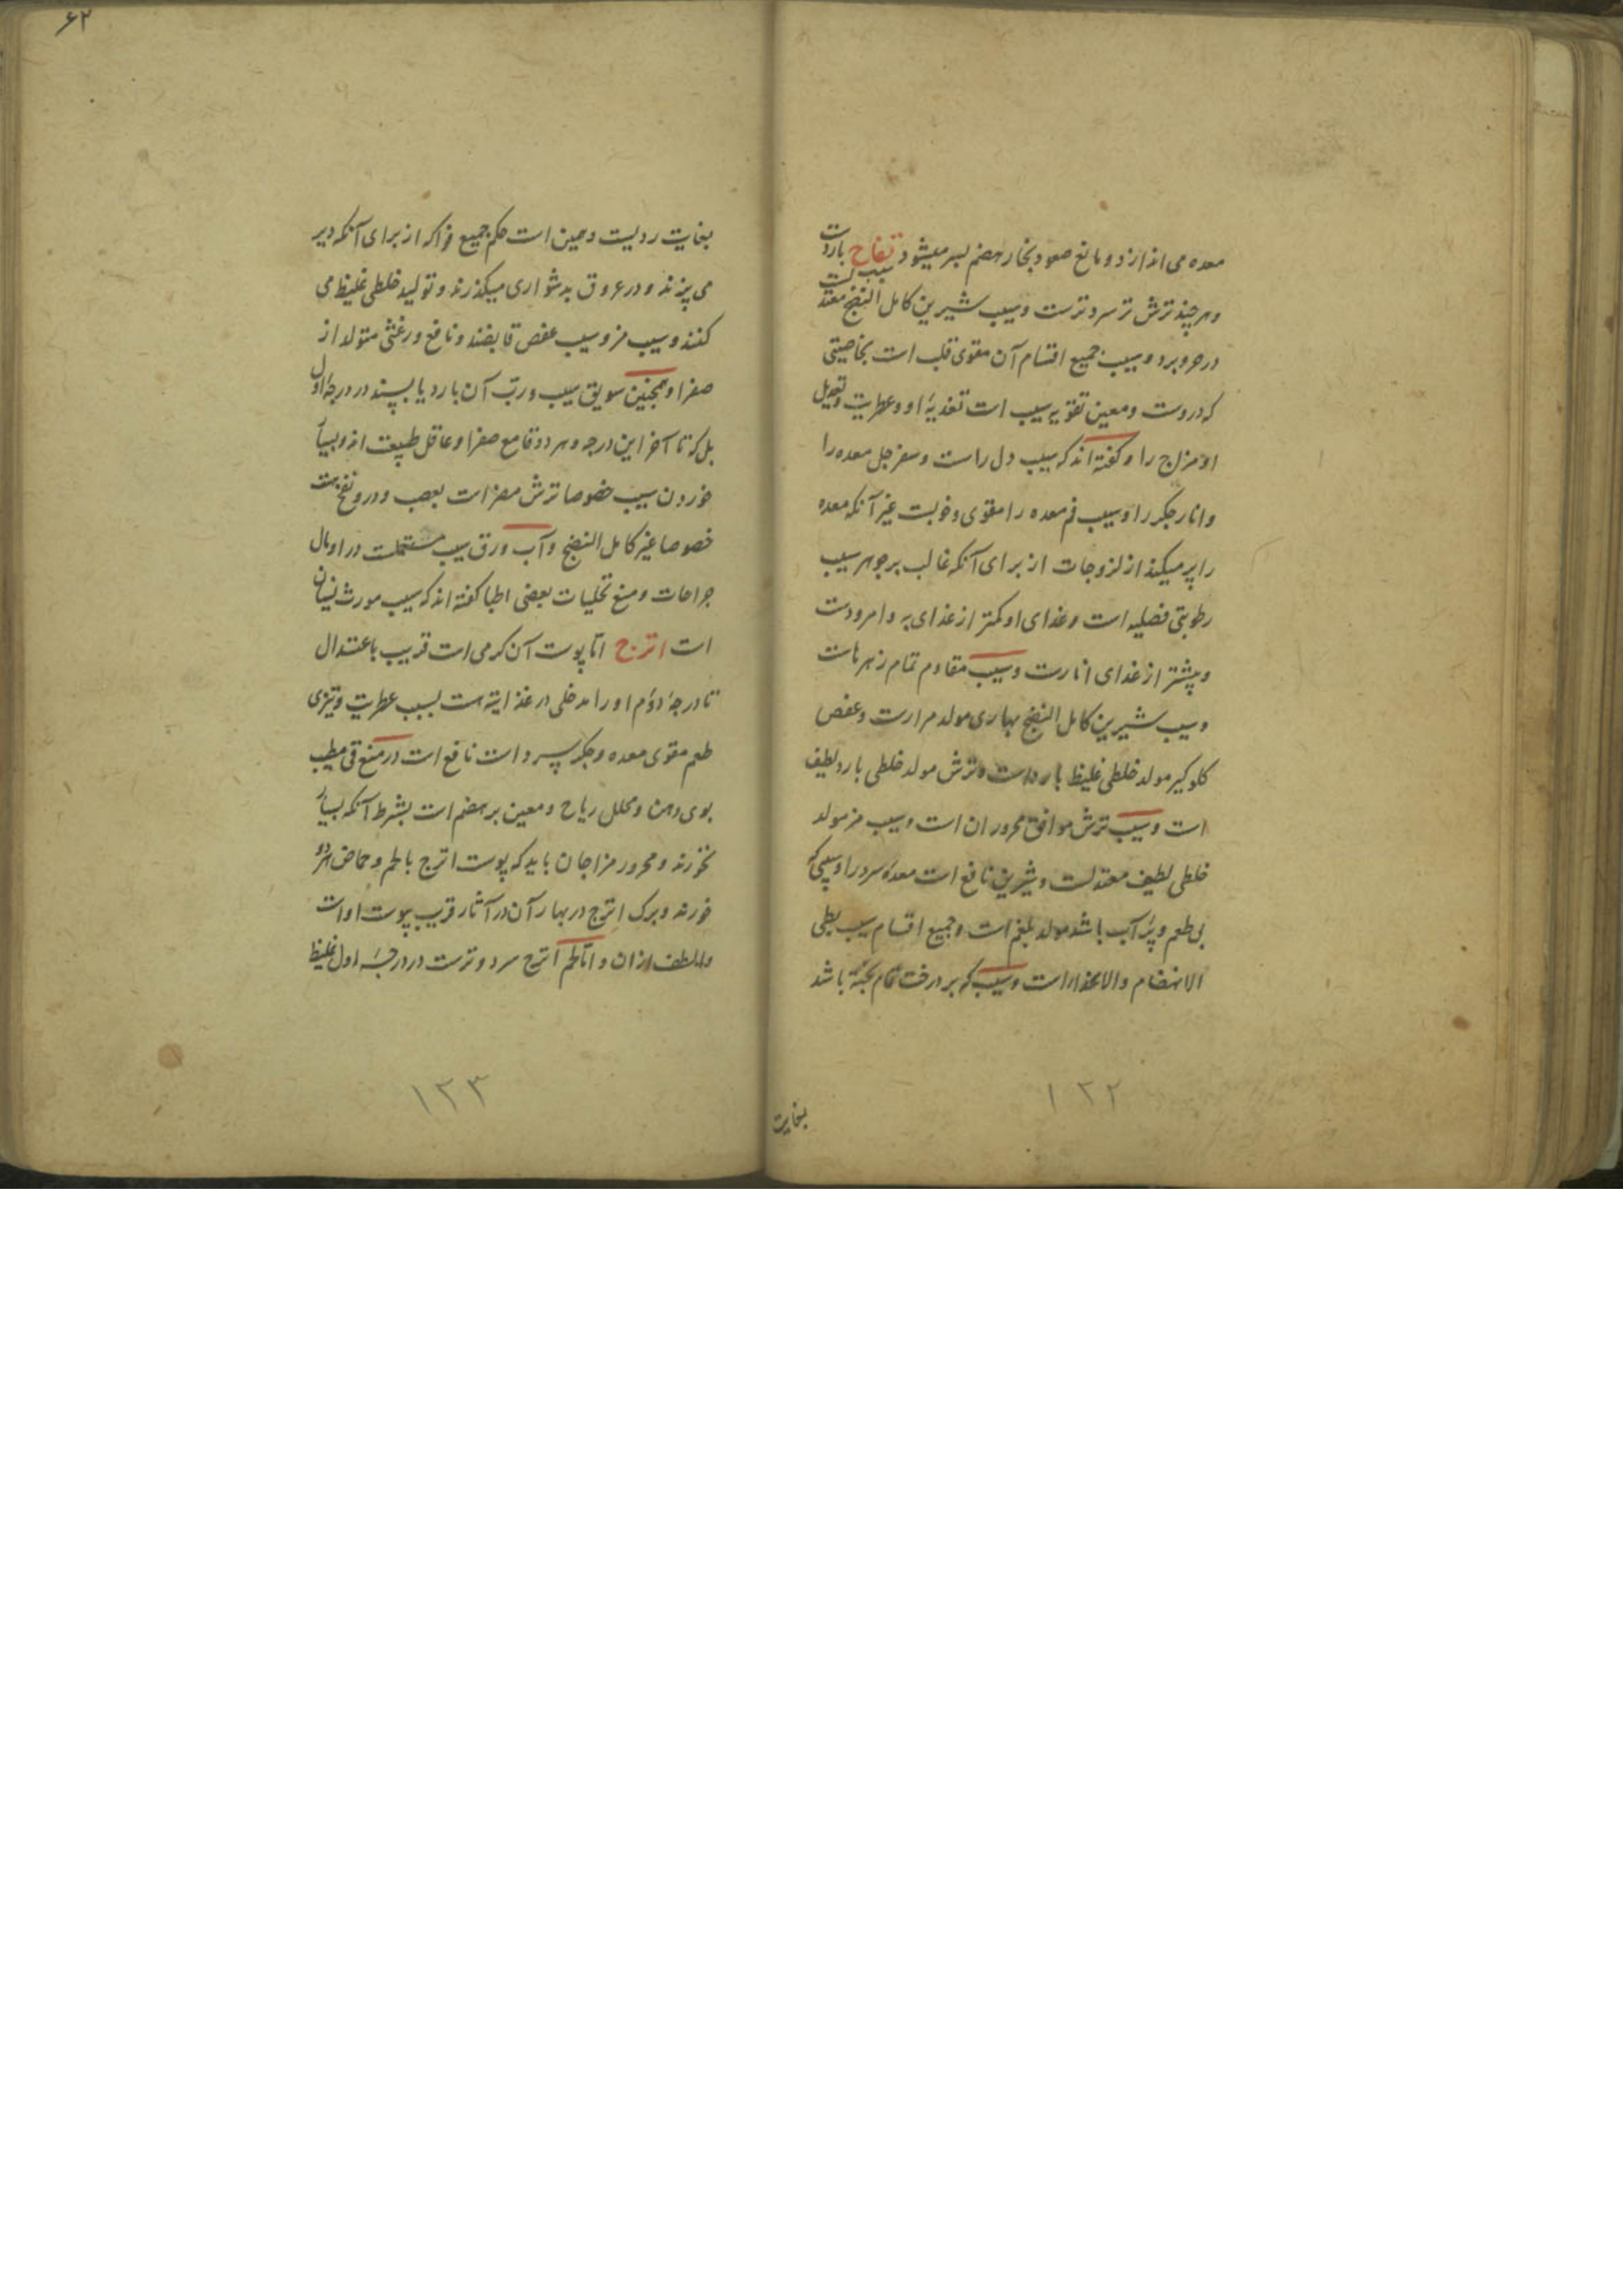 معده می اندازد و مانع صعود بخار هضم بسر میشود تفاح باردست
سیب
و هر چند ترش تر سردترست و سیب شیرین کامل النضج معتدلست
در حر و برد و سیب جمیع اقسام آن مقوی قلب است بخاصیتی
که دروست و معین تقویه سیب است تغذیهٔ او و عطریت و تعدیل
او مزاج را و کفته اند که سیب دل راست و سفرجل معده را
و انار جکر را و سیب فم معده را مقوی و خوبست غیر آنکه معده
را پر میکند از لزوجات از برای آنکه غالب بر جوهر سیب
رطوبتی فضلیه است و غذای او کمتر از غذای به و امرودست
و بیشتر از غذای انارست و سیب مقاوم تمام زهرهاست
و سیب شیرین کامل النضج بهاری مولد مرارت و عفص
کلوکیر مولد خلطی غلیظ بارد است و ترش مولد خلطی بارد لطیف
است و سیب ترش موافق محروران است و سیب مز مولد
خلطی لطیف معتدلست و شیرین نافع است معدهٔ سرد را و سیبی که
بی طعم و پر آب باشد مولد بلغم است و جمیع اقسام سیب بطی
الانهضام والانحدار است و سیب که بر درخت تمام پخته نباشد
۱۲۲
بغایت
۶۲
بغایت ردیست و همین است حکم جمیع فواکه از برای آنکه دیر
می پزند و در عروق بدشواری میکذرند و تولید خلطی غلیظ می
کنند و سیب مز و سیب عفص قابضند و نافع در غثی متولد از
صفرا و همچنین سویق سیب و رب آن بارد یابسند در درجهٔ اول
بل که تا آخر این درجه و هر دو قامع صفرا و عاقل طبیعت اند و بسیار
خوردن سیب خصوصا ترش مضر است بعصب و درو نفخ هست
خصوصا غیر کامل النضج و آب ورق سیب مستعملست در اندمال
جراحات و منع تحلیات بعضی اطبا کفته اند که سیب مورث نسیان
است اترج اما پوست آن کرمی است قریب باعتدال
تا درجهٔ دوم او را مدخلی در غذائیه هست بسبب عطریت و تیزی
طعم مقوی معده و جکر سرد است نافع است در منع قی مطیب
بوی دهن و محلل ریاح و معین بر هضم است بشرط آنکه بسیار
نخورند و محرور مزاجان باید که پوست اترج با لحم و حماض هر دو
خورند و برک اترج در بهار آن در آثار قریب پوست او است
و الطف ازان و اما لحم اترج سرد و ترست در درجهٔ اول غلیظ
۱۲۳